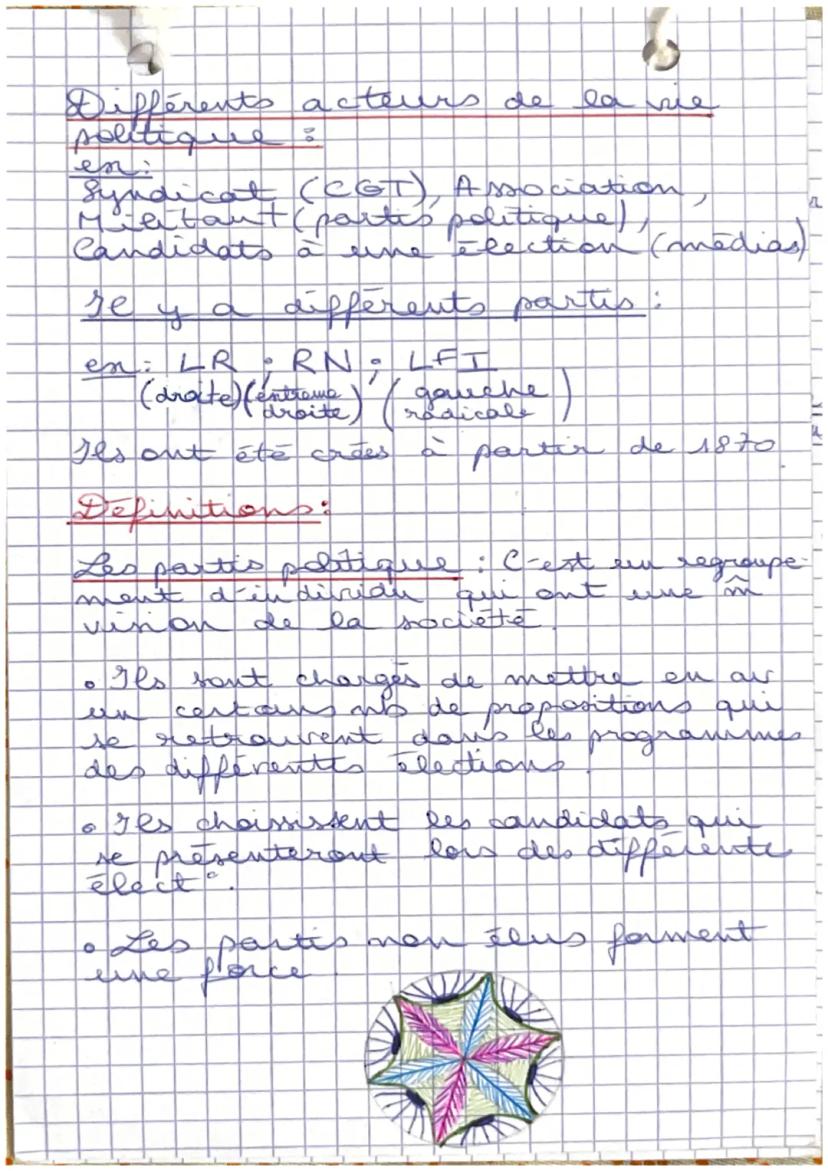 Différents acteurs de la vie
politique :
ex:
Syndicat (CGT), Association,
Militant (partis politique),
Candidats à une élection (médias)
Il y a différents partis :
ex: LR ; RN ; LFI
(droite) (extreme droite) (gauche radicale)
Ils ont été crées à partir de 1870.
Définitions :
Les partis politique : C'est un regroupe-
ment d'individu qui ont une m̂
vision de la société.
• Ils sont chargés de mettre en av
un certains nb de propositions qui
se retrouvent dans les programmes
des différentts élections.
• Ils choissisent les candidats qui
se présenteront lors des différente
élect°.
• Les partis non élus forment
une force